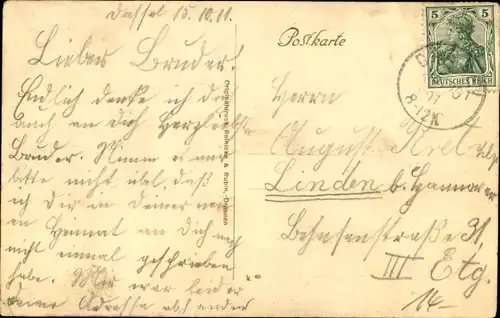 Dassel 15.10.11.
Lieber Bruder!
Endlich denke ich doch
auch an dich Herzliebster
Bruder. Nimm es mir
bitte nicht übel, daß
ich Dir in deiner neuen
Heimat an Dich noch
nicht einmal geschrieben
habe. Mir war leider
deine Adresse abhanden
Originaldruck Reinicke & Rubin, Dresden
Postkarte
5 5
DEUTSCHES REICH
8-12V
Herrn
August
Linden b. Hannover
Behnsenstraße 31,
III Etg.